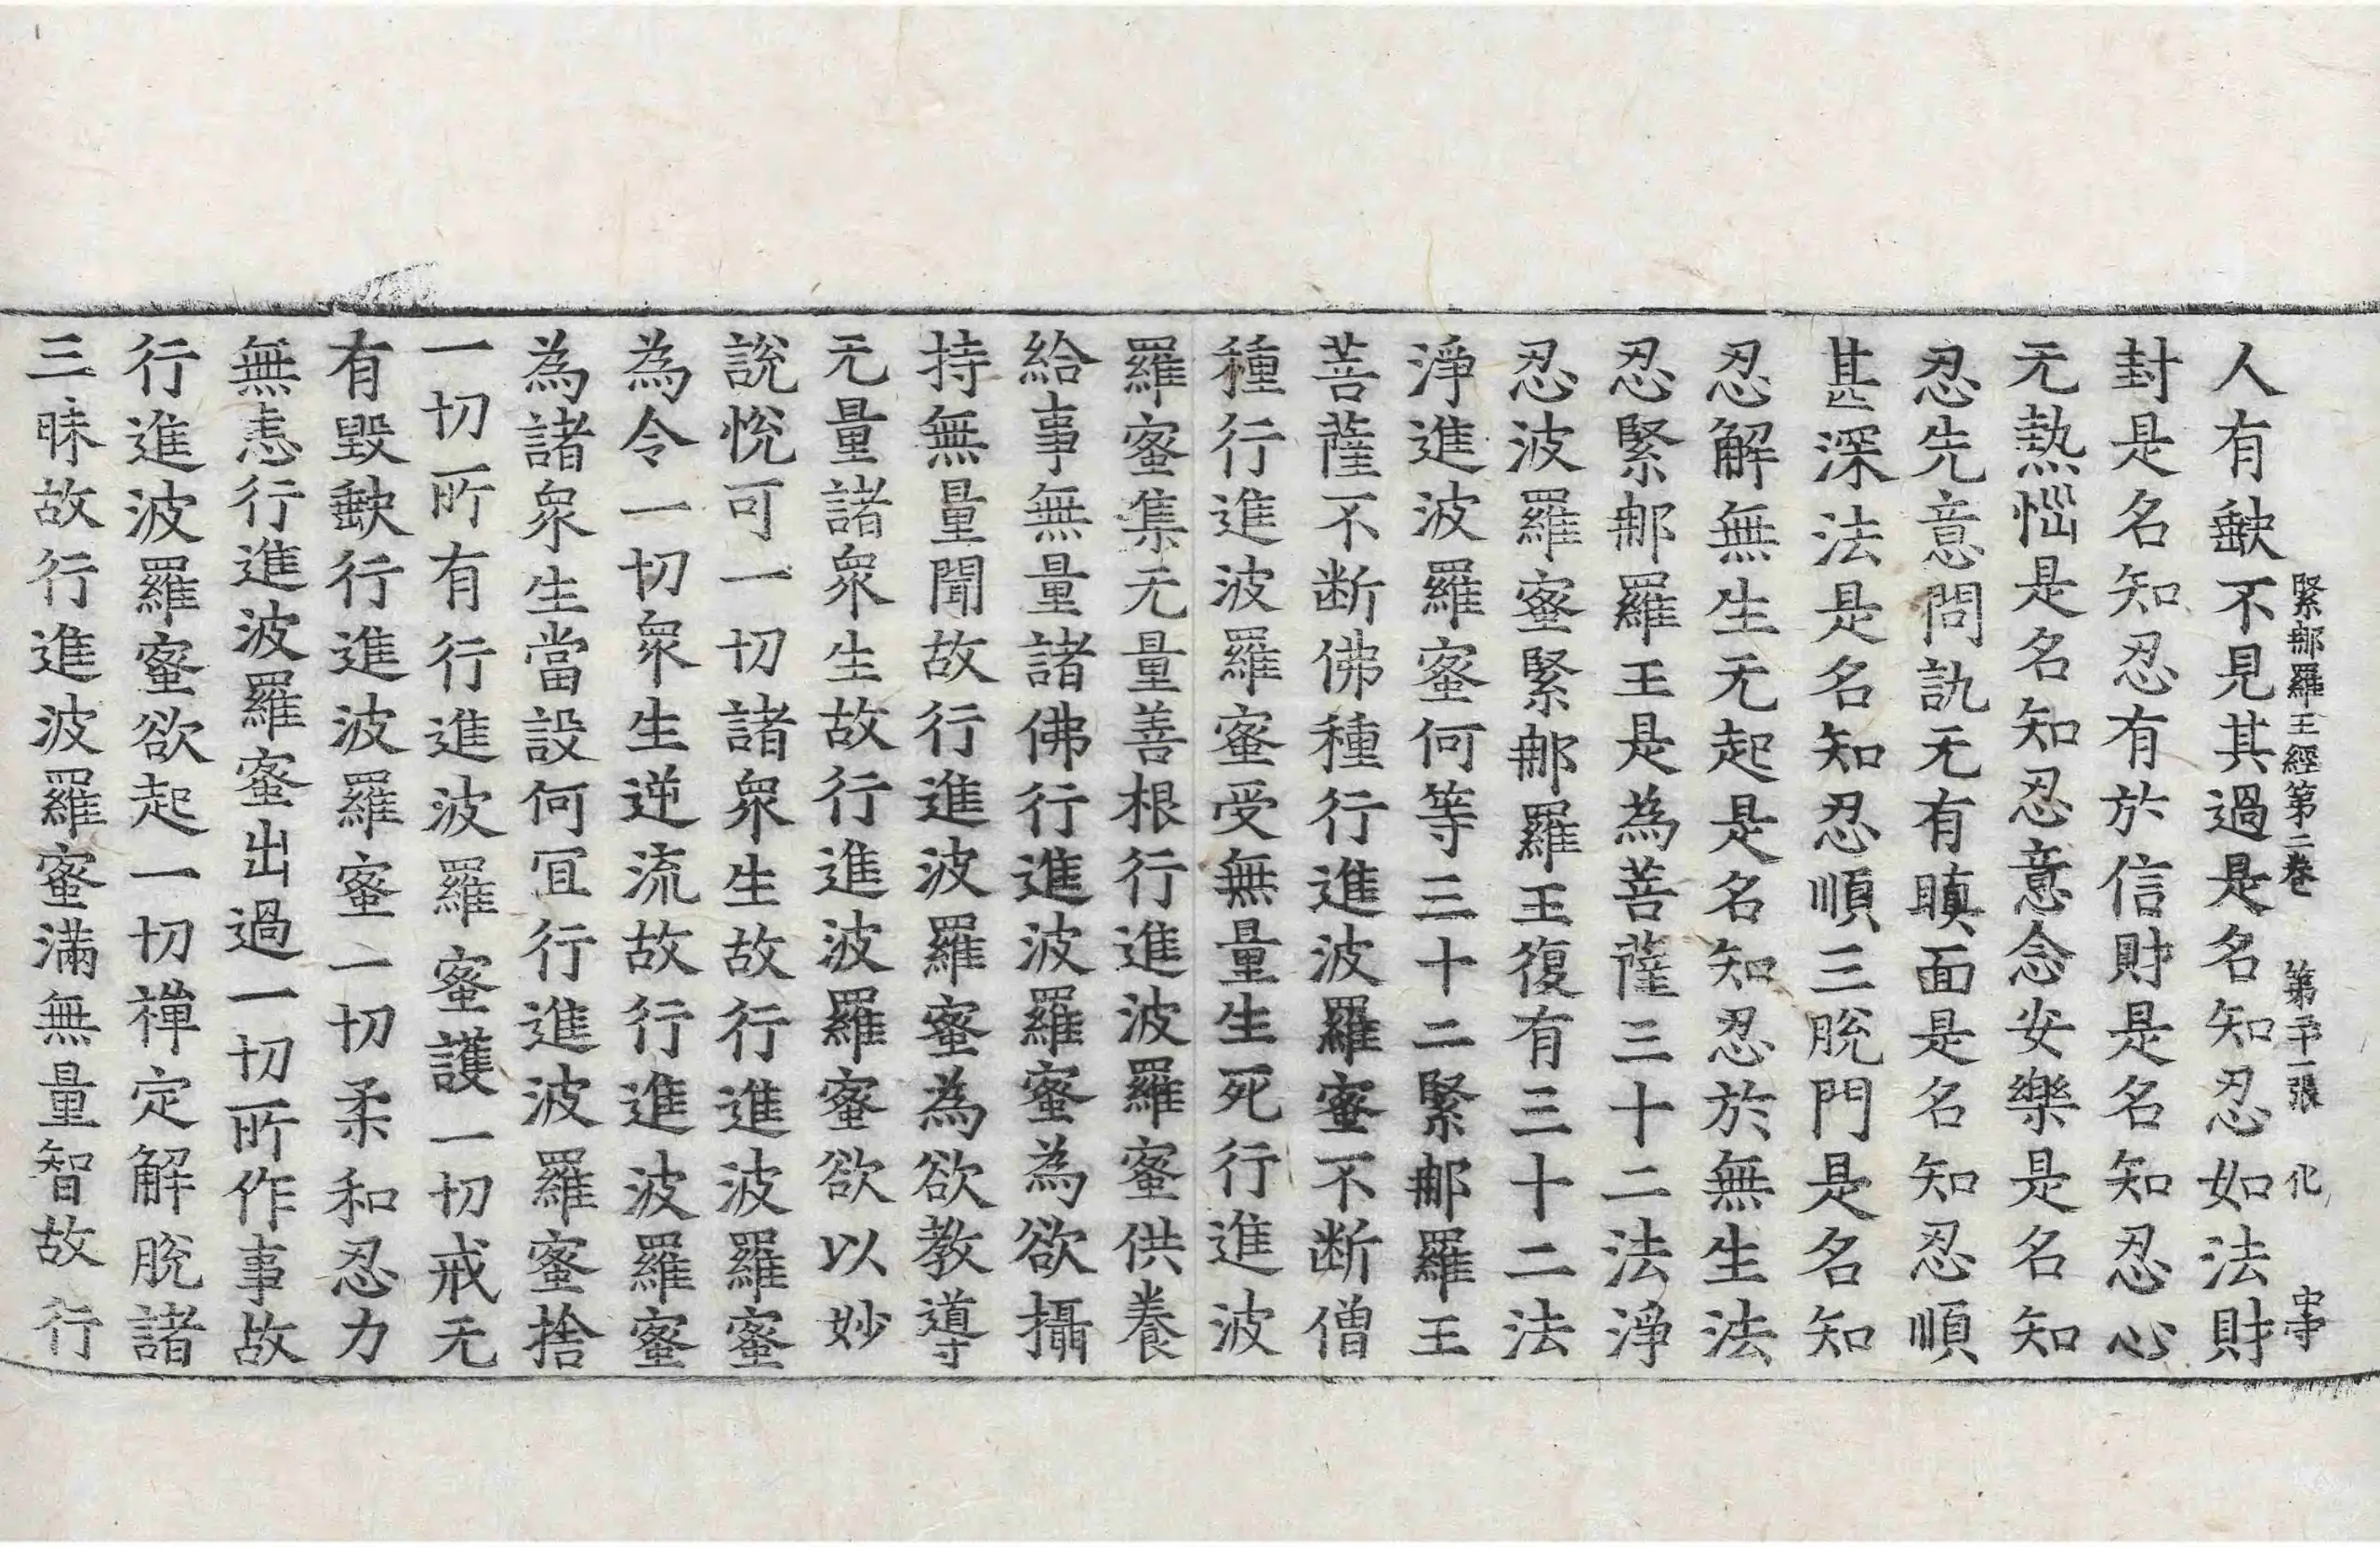 緊那羅王經第二卷　第二十一張　化　中守
人有𡙇不見其過是名知忍如法財
封是名知忍有於信財是名知忍心
无熱惱是名知忍意念安樂是名知
忍先意問訊无有瞋面是名知忍順
甚深法是名知忍順三脫門是名知
忍解無生无起是名知忍於無生法
忍緊那羅王是為菩薩三十二法淨
忍波羅蜜緊那羅王復有三十二法
淨進波羅蜜何等三十二緊那羅王
菩薩不断佛種行進波羅蜜不断僧
種行進波羅蜜受無量生死行進波
羅蜜集无量善根行進波羅蜜供養
給事無量諸佛行進波羅蜜為欲攝
持無量聞故行進波羅蜜為欲教導
无量諸衆生故行進波羅蜜欲以妙
說悅可一切諸衆生故行進波羅蜜
為令一切衆生逆流故行進波羅蜜
為諸衆生當設何冝行進波羅蜜捨
一切所有行進波羅蜜護一切戒无
有毀𡙇行進波羅蜜一切柔和忍力
無恚行進波羅蜜出過一切所作事故
行進波羅蜜欲起一切禪定解脫諸
三昧故行進波羅蜜滿無量智故行